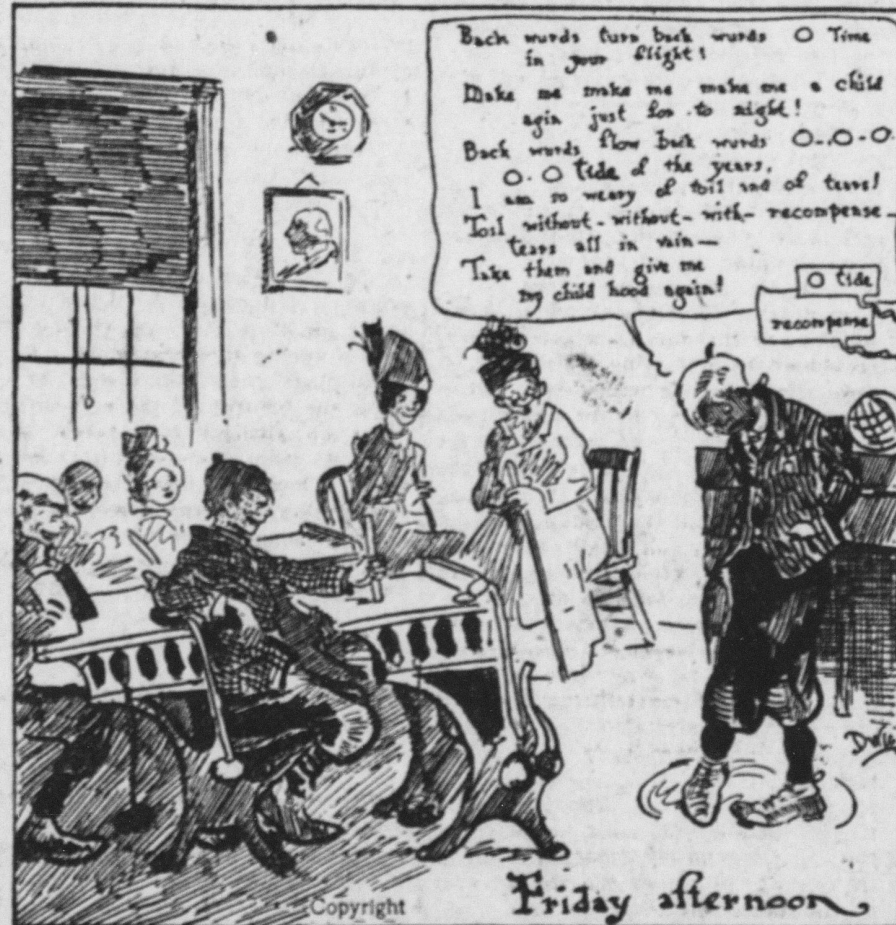 Back wurds turn back wurds O Time
in your flight!
Make me make me make me a child
agin just for to night!
Back wurds flow back wurds O..O-O.
O-O tide of the years.
I am so weary of toil and of tears!
Toil without-without-with-recompense-
tears all in vain—
Take them and give me
my child hood again!
O tide
recompense
Copyright
Friday afternoon